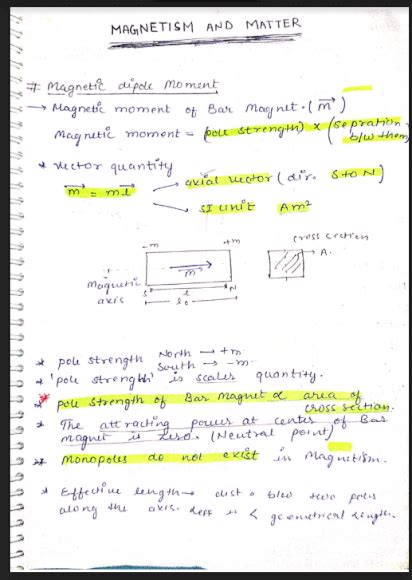 MAGNETISM AND MATTER
# Magnetic dipole Moment
→ Magnetic moment of Bar Magnet. (m⃗)
Magnetic moment = (pole strength) × (sepration
b/w them)
* vector quantity
m⃗ = ml⃗
→ axial vector (dir. S to N)
→ SI unit Am²
-m +m
cross section
→ A.
m⃗
Magnetic
axis
S l N
l₀
* pole strength North → +m
South → -m
* 'pole strength' is scaler quantity.
* pole strength of Bar Magnet ∝ area of
cross section.
* The attracting power at center of Bar
magnet is zero. (Neutral point)
* Monopoles do not exist in Magnetism.
* Effective length → dist. b/w two poles
along the axis. leff is < geometrical length.